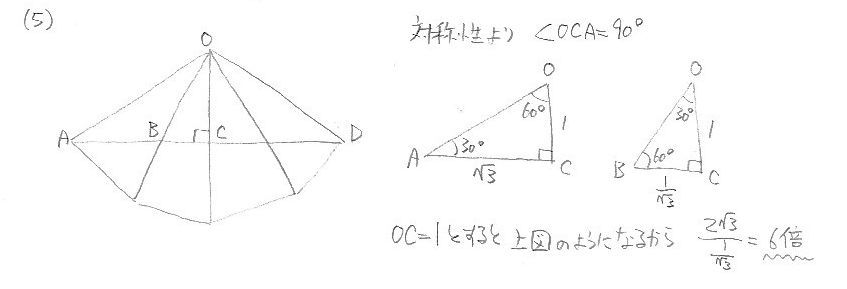 (5)
対称性より ∠OCA=90°
O
A
B
C
D
O
60°
1
30°
A
√3
C
O
30°
1
60°
B
1/√3
C
OC=1とすると 上図のようになるから 2√3/(1/√3) = 6倍